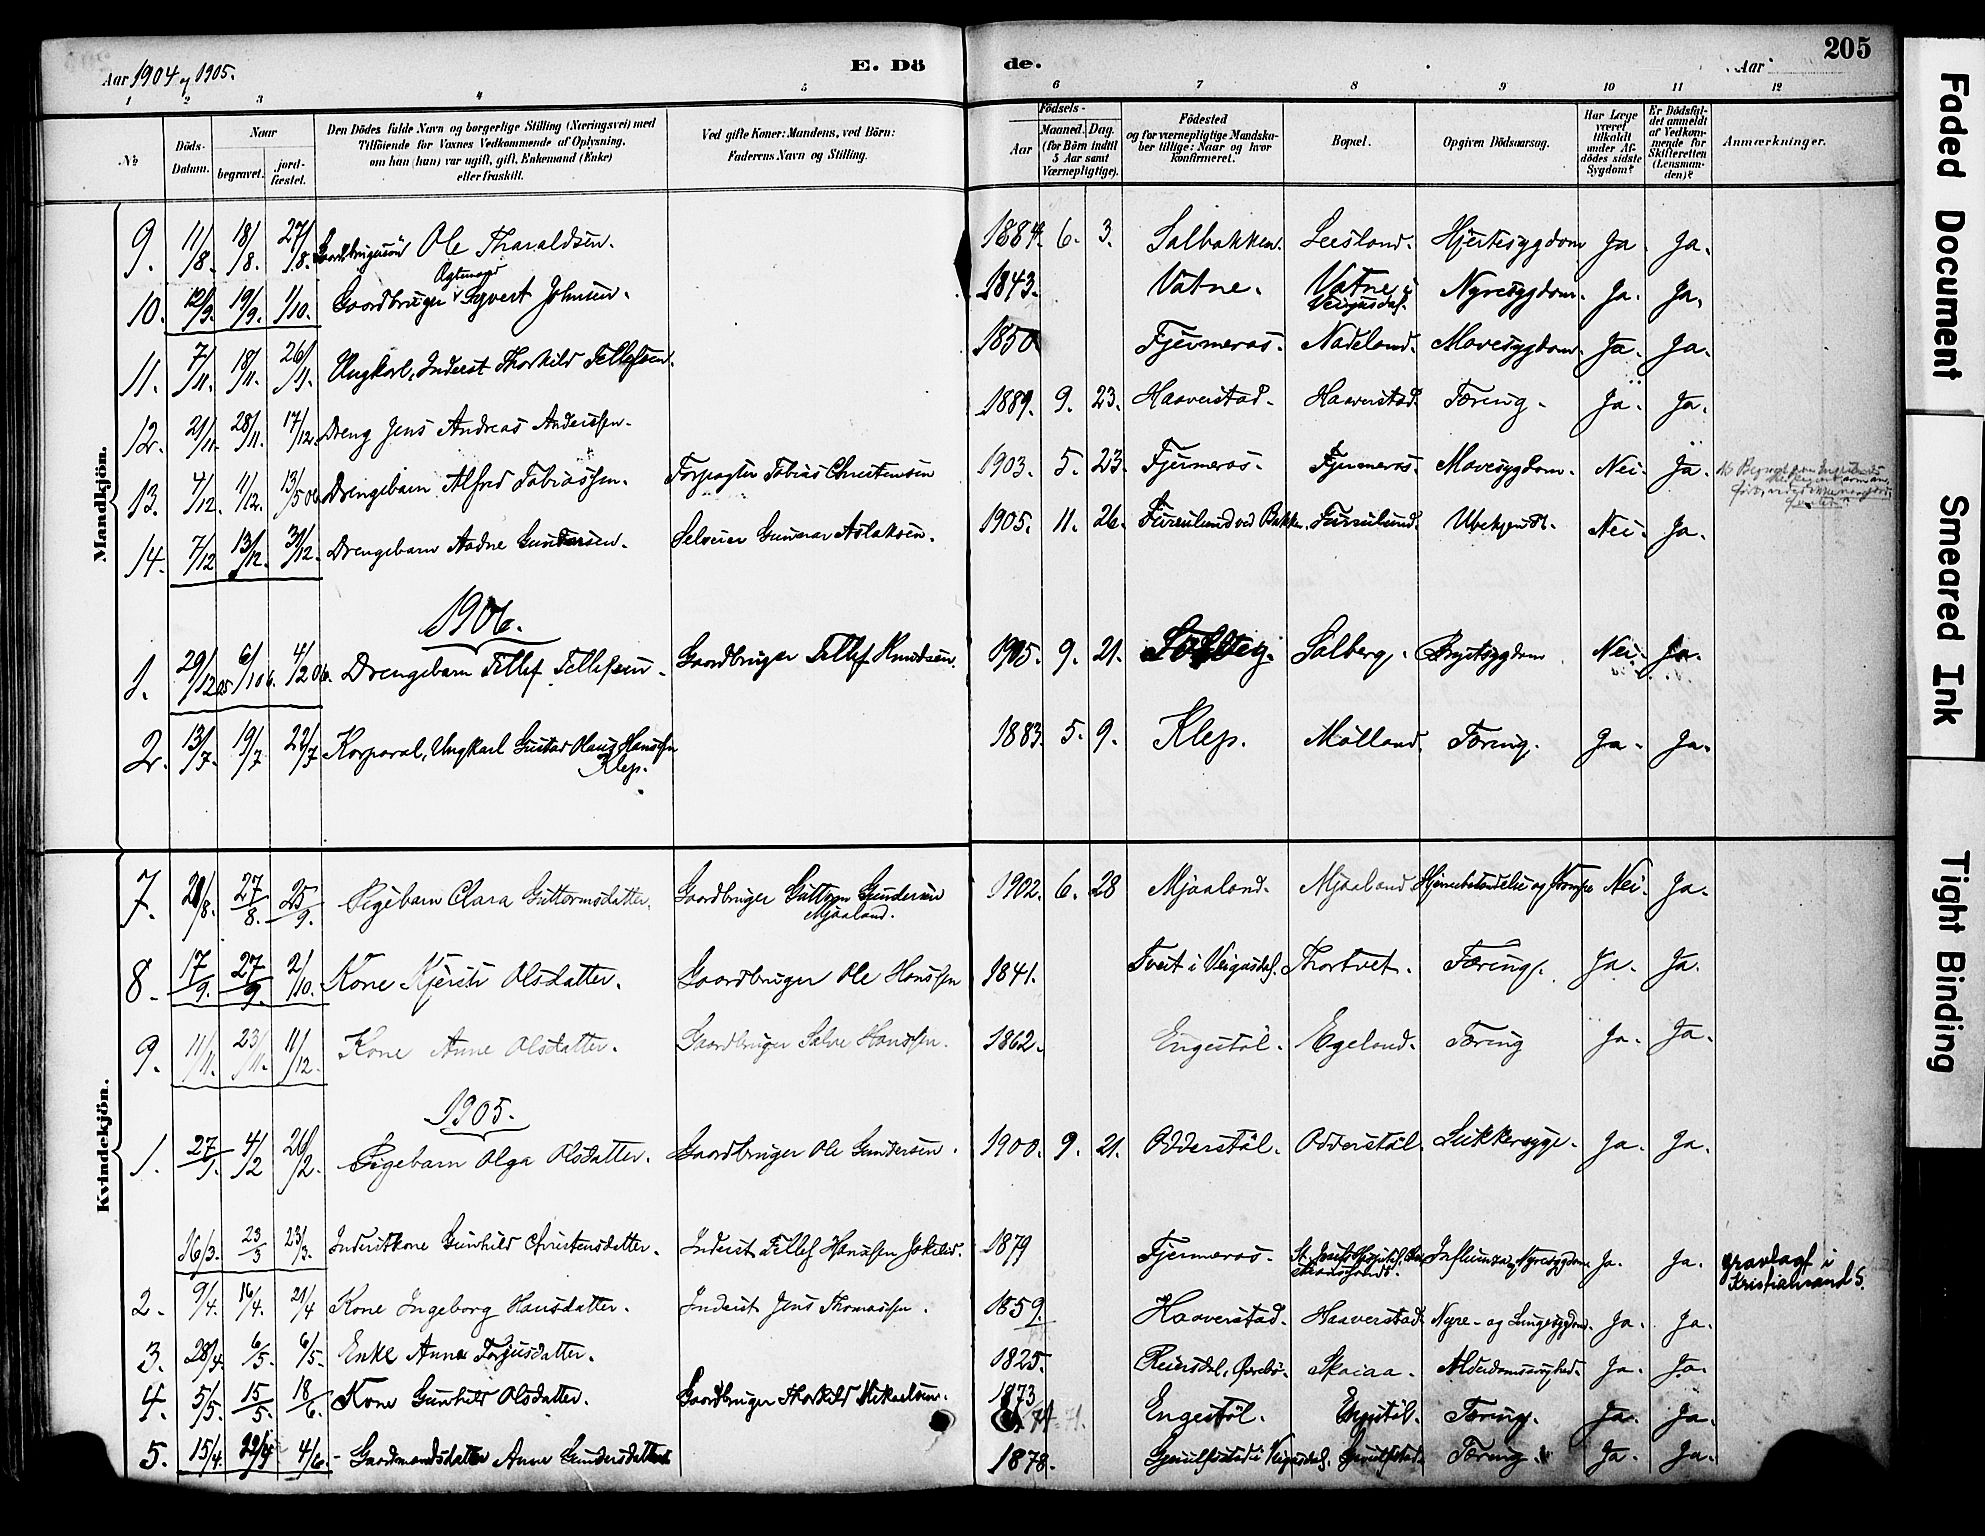 Aar 1904 og 1905.
E. Dö
de.
Aar
205
1 2 3 4 5 6 7 8 9 10 11 12
№
Döds-Datum.
Naar
begravet.
jordfæstet.
Den Dödes fulde Navn og borgerlige Stilling (Næringsvei) med
Tilföiende for Voxnes Vedkommende af Oplysning,
om han (hun) var ugift, gift, Enkemand (Enke)
eller fraskilt.
Ved gifte Koner: Mandens, ved Börn:
Faderens Navn og Stilling.
Födsels-
Aar
Maaned. Dag.
(for Börn indtil
5 Aar samt
Værnepligtige).
Födested
og for værnepligtige Mandskaber tillige: Naar og hvor
konfirmeret.
Bopæl.
Opgiven Dödsaarsag.
Har Læge
været
tilkaldt
under Afdödes sidste
Sygdom?
Er Dödsfaldet anmeldt
af Vedkommende for
Skifteretten
(Lensmanden)?
Anmærkninger.
Mandkjön.
9. 11/8. 18/8. 27/8. Gaardbrugersön Ole Tharaldsen. 1884. 6. 3. Salbakken. Leesland. Hjertesygdom Ja. Ja.
10. 12/9. 19/9. 1/10. Gaardbruger Sÿvert Johnsen. 1843. Vatne. Vatne i Veigusdal. Nyresygdom. Ja. Ja.
11. 7/11. 18/11. 26/11. Ungkarl, Inderst Thorkild Tellefsen. 1850 Fjermeros. Nadeland. Mavesygdom. Ja. Ja.
12. 21/11. 28/11. 17/12. Dreng Jens Andreas Anderssen. 1889. 9. 23. Haaverstad. Haaverstad. Tæring. Ja. Ja.
13. 4/12. 11/12. 13/5 06 Drengebarn Alfred Tobiassen. Forpagter Tobias Christensen 1903. 5. 23. Fjermeros. Fjermeros. Mavesygdom. Nei. Ja.
14. 7/12 13/12. 31/12. Drengebarn Aadne Gunnarsen. Selveier Gunnar Aslaksen. 1905. 11. 26. Furulund ved Bakken. Furulund. Ubekjendt. Nei. Ja.
1906.
1. 29/12 05 6/1 06. 4/2 06. Drengebarn Tellef Tellefsen. Gaardbruger Tellef Knudsen. 1905. 9. 21. Salberg. Brystsygdom. Nei. Ja.
2. 13/7. 19/7 22/7 Korporal, Ungkarl Gustav Hans Hanssen
Klep.
1883. 5. 9. Klep. Mölland. Tæring. Ja. Ja.
Kvindekjön.
7. 21/8. 27/8. 25/9. Pigebarn Clara Guttormsdatter. Gaardbruger Guttorm Gundersen
Mjaaland.
1902. 6. 28 Mjaaland. Mjaaland. Hjernebetændelse og Krampe Nei. Ja.
8. 17/9. 27/9. 2/10. Kone Kjersti Olsdatter. Gaardbruger Ole Hanssen 1841. Tveit i Veigusdal. Thortvet. Tæring. Ja. Ja.
9. 11/11. 23/11. 11/12. Kone Anne Olsdatter. Gaardbruger Salve Hanssen. 1862. Engestöl. Egeland. Tæring Ja. Ja.
1905.
1. 27/1. 4/2 26/2. Pigebarn Olga Olsdatter. Gaardbruger Ole Gundersen. 1900. 9. 21. Odderstöl. Odderstöl. Sukkersyge. Ja. Ja.
16/3. 23/3 23/3. Inderstkone Gunhild Christensdatter. Inderst Tellef Hanssen 1879 Fjermeros. St. Josefs Hospital, Influenza, Nyresygdom. Ja. Ja. gravlagt i
Kristiansand S.
2. 9/4. 16/4. 21/4 Kone Ingeborg Hansdatter. Inderst Jens Thomassen. 1859. Haaverstad. Haaverstad. Nyre- og Lungesygdom. Ja. Ja.
3. 28/4. 6/5. 6/5. Enke Anne Terjusdatter. 1825. Reiersdal, Övrebö. Skaiaa. Alderdomssvaghed. Ja. Ja.
4. 5/5. 15/5. 18/6. Kone Gunhild Olsdatter. Gaardbruger Thorkild Mikaelsen. 1873 Engestöl. Engestöl. Tæring. Ja. Ja.
5. 15/4. 22/4 4/6. Gaardmandsdatter Anne Gundersdatter 1878. Gjeiulfsstad i Veigusdal. Gjeiulfsstad. Tæring. Ja. Ja.
Faded Document
Smeared Ink
Tight Binding